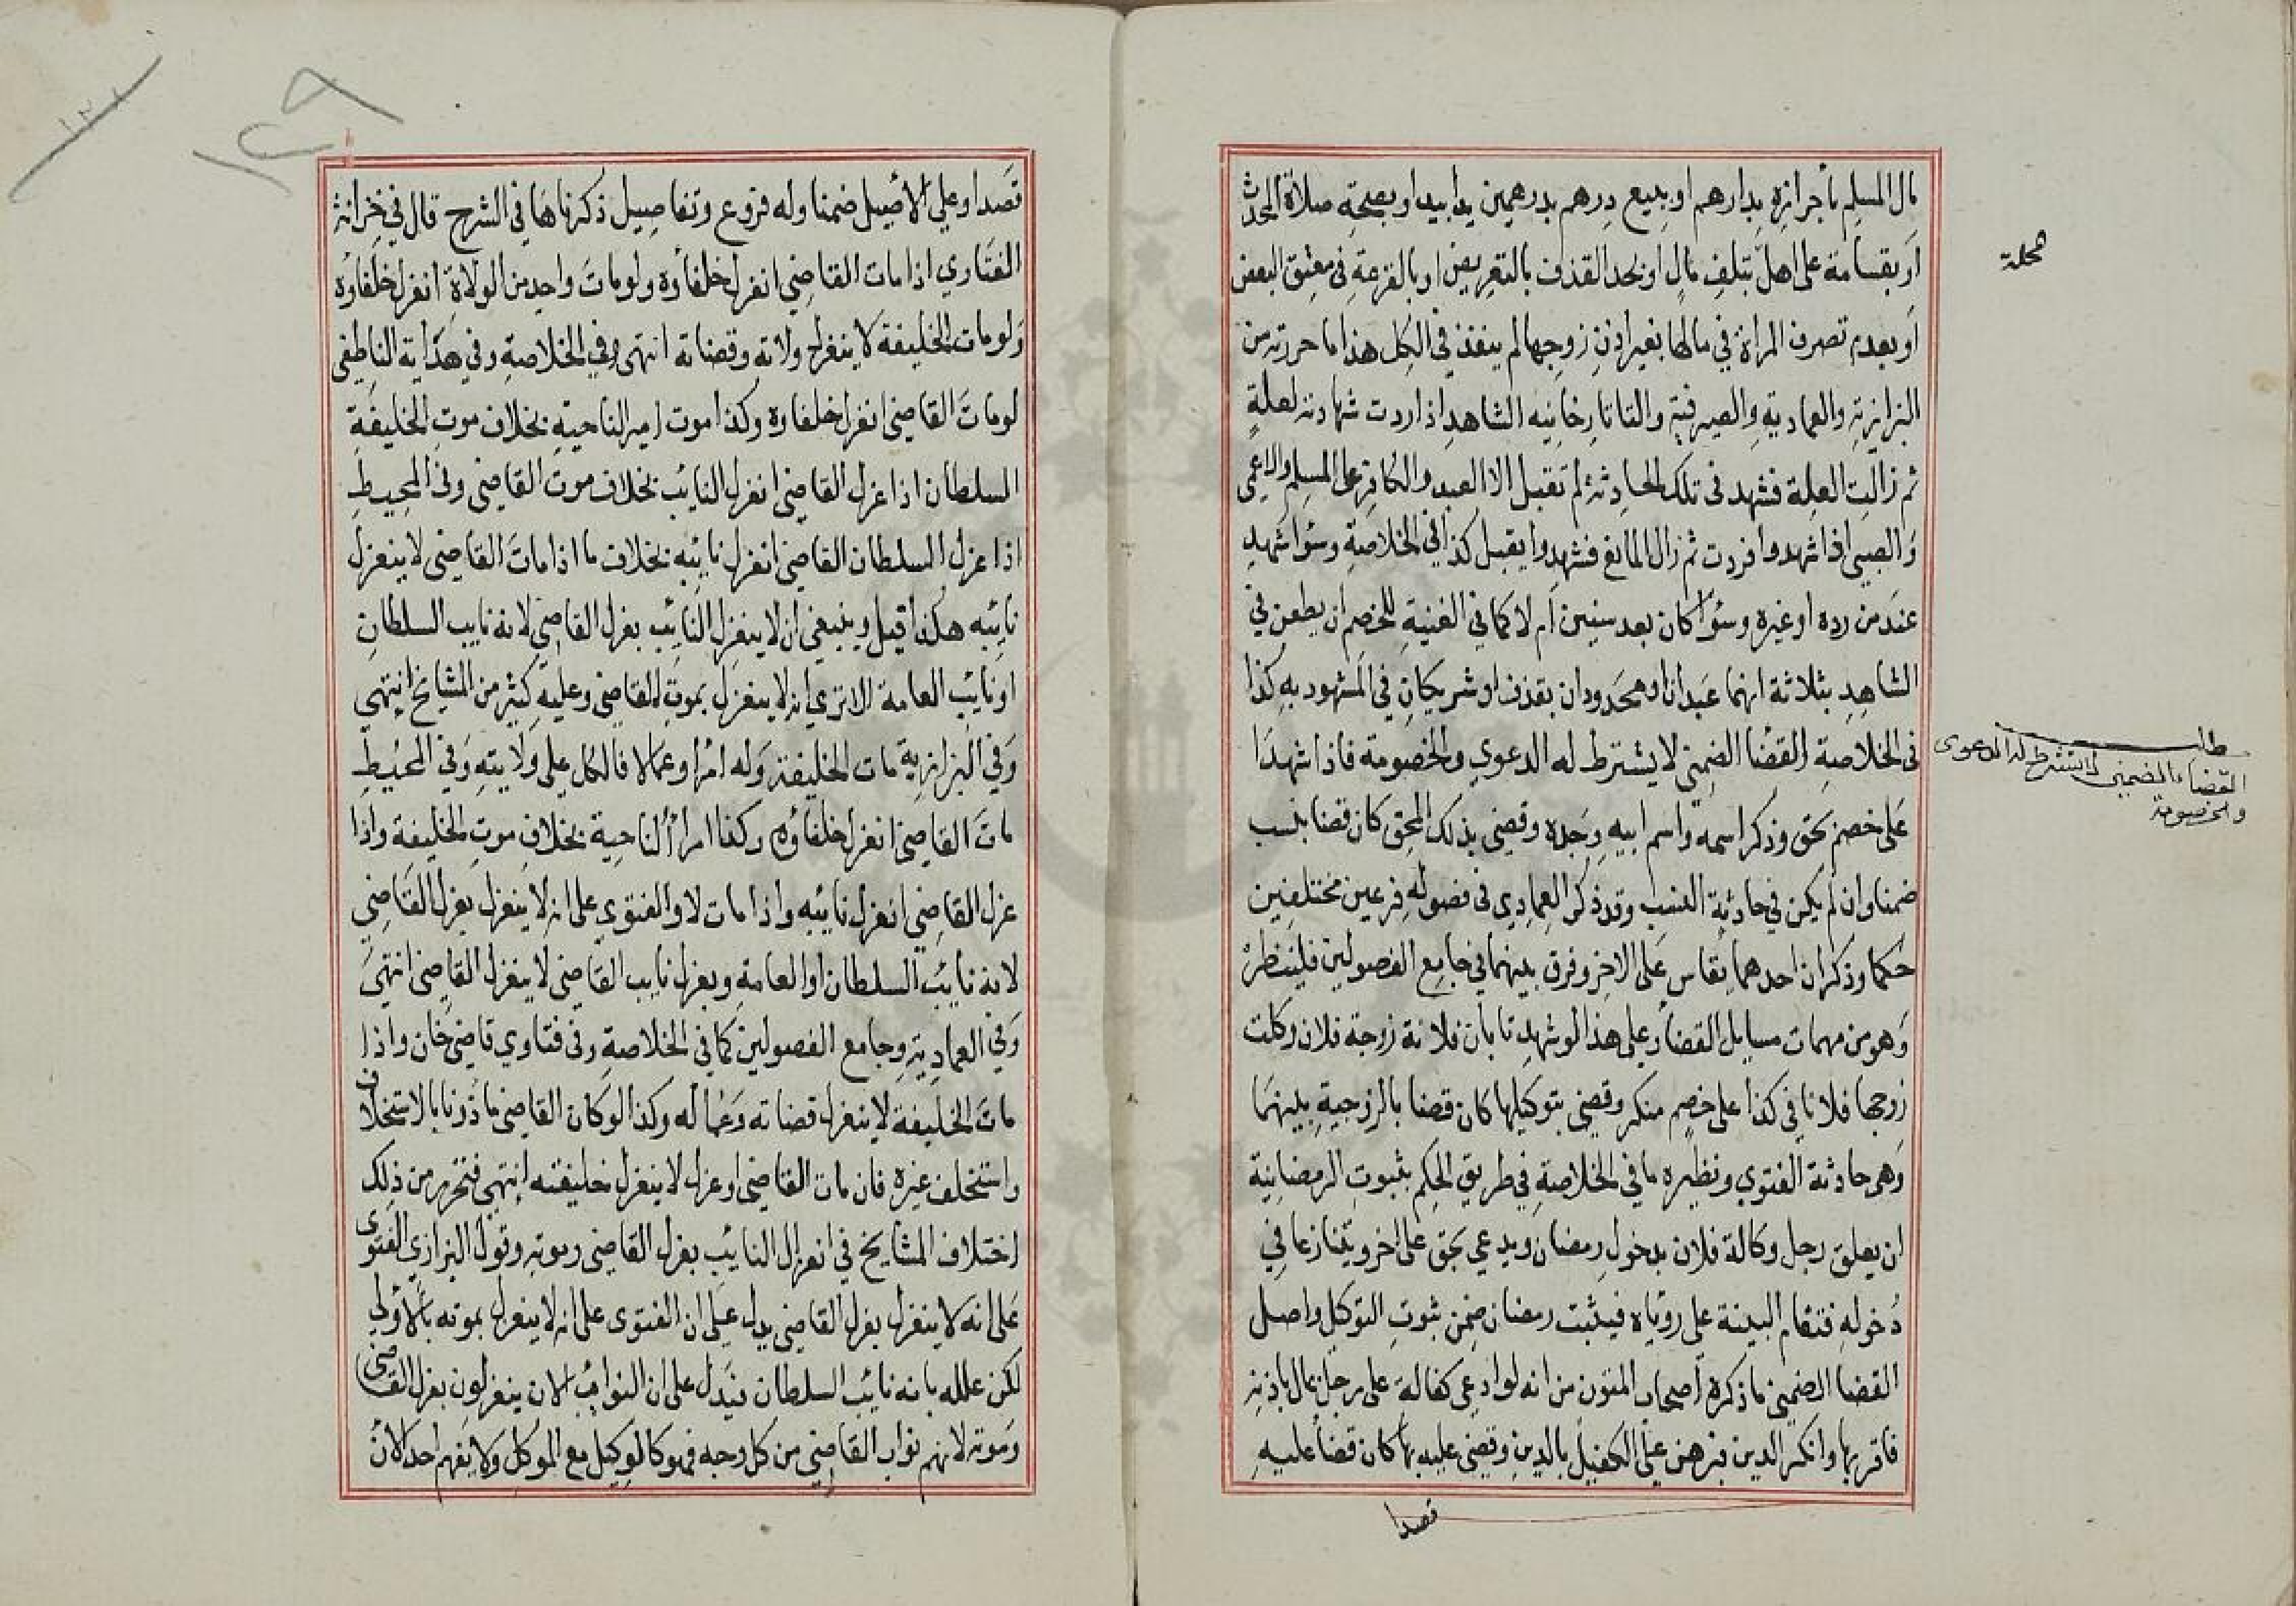 مال المسلم بأحرازه بدارهم او ببيع درهم بدرهمين يدا بيد او بصحة صلاة المحدث
او بقسامة على اهل بتلف مال او بحد القذف بالتعريض او بالقرعة في معتق البعض
محلة
او بعدم تصرف المراة في مالها بغير اذن زوجها لم ينفذ في الكل هذا ما حررته من
البزازية والعمادية والصيرفية والتاتارخانيه الشاهد اذا ردت شهادته لعلة
ثم زالت العلة فشهد في تلك الحادثة لم تقبل الا العبد والكافر على المسلم والاعمى
والصبي اذا شهدوا فردت ثم زال المانع فشهدوا يقبل كذا في الخلاصة وسوٓا شهد
عند من رده او غيره وسوٓا كان بعد سنين ام لا كما في القنية للخصم ان يطعن في
الشاهد بثلاثة انهما عبدان او محدودان بقذف او شريكان في المشهود به كذا
في الخلاصة القضا الضمني لا يشترط له الدعوي والخصومة فاذا شهدا
مطلب
القضاء الضمني لا يشترط له الدعوى
والخصومة
على خصم بحق وذكرا اسمه واسم ابيه وجده وقضي بذلك الحق كان قضا بنسب
ضمنا وان لم يكن في حادثة النسب وقد ذكر العمادي في فصوله فرعين مختلفين
حكما وذكر ان احدهما يقاس على الاخر وفرق بينهما في جامع الفصولين فلينظر
وهو من مهمات مسايل القضا وعلى هذا لو شهدا بان فلانة زوجة فلان وكلت
زوجها فلانا في كذا على خصم منكر وقضي بتوكيلها كان قضا بالزوجية بينهما
وهي حادثة الفتوي ونظيره ما في الخلاصة في طريق الحكم بثبوت الرمضانية
ان يعلق رجل وكالة فلان بدخول رمضان ويدعي بحق على اخر ويتنازعا في
دخوله فتقام البينة على رؤياه فيثبت رمضان ضمن ثبوت التوكيل واصل
القضا الضمني ما ذكره اصحاب المتون من انه لو ادعي كفالة على رجل بمال باذنه
فاقر بها وانكر الدين فبرهن على الكفيل بالدين وقضي عليه بها كان قضا عليه
قصدا
قصدا وعلى الاصيل ضمنا وله فروع وتفاصيل ذكرناها في الشرح قال في خزانة
الفتاوي اذا مات القاضي انعزل خلفاؤه ولو مات واحد من الولاة انعزل خلفاؤه
ولو مات الخليفة لا ينعزل ولاته وقضاته انتهى وفي الخلاصة وفي هداية الناطفي
لو مات القاضي انعزل خلفاوه وكذا موت امير الناحية بخلاف موت الخليفة
السلطان اذا عزل القاضي انعزل النايب بخلاف موت القاضي وفي المحيط
اذا عزل السلطان القاضي انعزل نايبه بخلاف ما اذا مات القاضي لا ينعزل
نايبه هكذا قيل وينبغي ان لا ينعزل النايب بعزل القاضي لانه نايب السلطان
او نايب العامة الا تري انه لا ينعزل بموت القاضي وعليه كثير من المشايخ انتهى
وفي البزازية مات الخليفة وله امرا وعمالا فالكل على ولايته وفي المحيط
مات القاضي انعزل خلفاؤه وكذا امرا الناحية بخلاف موت الخليفة واذا
عزل القاضي انعزل نايبه واذا مات لا والفتوي على انه لا ينعزل بعزل القاضي
لانه نايب السلطان او العامة وبعزل نايب القاضي لا ينعزل القاضي انتهى
وفي العمادية وجامع الفصولين كما في الخلاصة وفي فتاوي قاضي خان واذا
مات الخليفة لا ينعزل قضاته وعماله وكذا لو كان القاضي ماذونا بالاستخلاف
واستخلف غيره فان مات القاضي او عزل لا ينعزل خليفته انتهى فتحرر من ذلك
اختلاف المشايخ في انعزال النايب بعزل القاضي وموته وقول البزازي الفتوى
على انه لا ينعزل بعزل القاضي يدل على ان الفتوى على انه لا ينعزل بموته بالاولي
لكن علله بانه نايب السلطان فيدل على ان النواب الان ينعزلون بعزل القاضي
وموته لانهم نواب القاضي من كل وجه فهو كالوكيل مع الموكل ولا يفهم احد الان